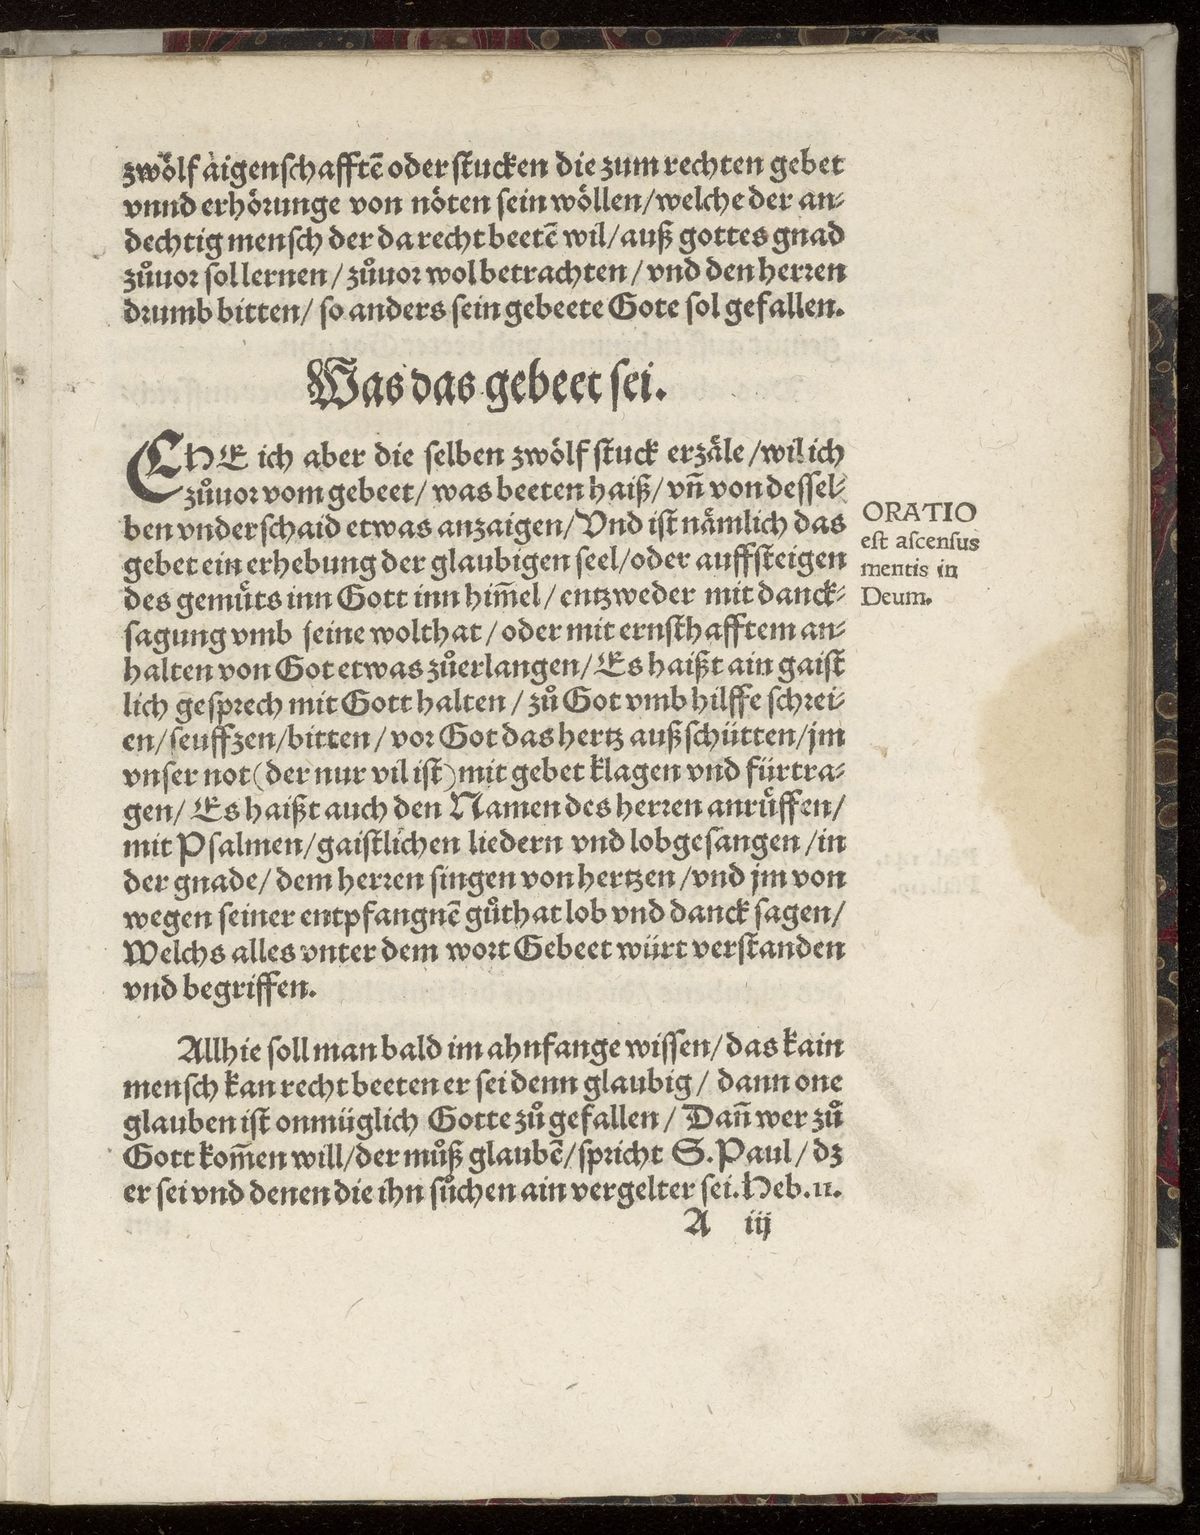 zwölf aigenschafftē oder stucken die zum rechten gebet
vnnd erhörunge von nöten sein wöllen/welche der an-
dechtig mensch der da recht beetē wil/auß gottes gnad
zůuor sol lernen/zůuor wol betrachten/vnd den herren
drumb bitten/so anders sein gebeete Gote sol gefallen.
Was das gebeet sei.
EHE ich aber die selben zwölf stuck erzäle/wil ich
zůuor vom gebeet/was beeten haiß/vñ von dessel-
ben vnderschaid etwas anzaigen/Vnd ist nämlich das
gebet ein erhebung der glaubigen seel/oder auffsteigen
des gemüts inn Gott inn him̄el/entzweder mit danck-
sagung vmb seine wolthat/oder mit ernsthafftem an-
halten von Got etwas zůerlangen/Es haißt ain gaist
lich gesprech mit Gott halten/zů Got vmb hilffe schrei-
en/seuffzen/bitten/vor Got das hertz außschütten/jm
vnser not(der nur vil ist)mit gebet klagen vnd fürtra-
gen/Es haißt auch den Namen des herren anrüffen/
mit Psalmen/gaistlichen liedern vnd lobgesangen/in
der gnade/dem herren singen von hertzen/vnd jm von
wegen seiner entpfangnē gůthat lob vnd danck sagen/
Welchs alles vnter dem wort Gebeet würt verstanden
vnd begriffen.
ORATIO
est ascensus
mentis in
Deum.
Allhie soll man bald im ahnfange wissen/das kain
mensch kan recht beeten er sei denn glaubig/dann one
glauben ist onmüglich Gotte zů gefallen/Dañ wer zů
Gott kom̄en will/der můß glaubē/spricht S. Paul/dz
er sei vnd denen die ihn sůchen ain vergelter sei.Heb.11.
A iij